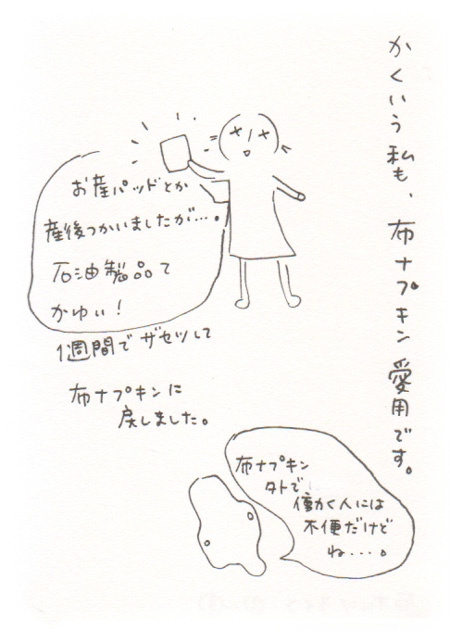 かくいう私も、布ナプキン愛用です。
お産パッドとか
産後つかいましたが…。
石油製品て
かゆい!
1週間でザセツして
布ナプキンに
戻しました。
布ナプキン
外で
働く人には
不便だけど
ね・・・・。